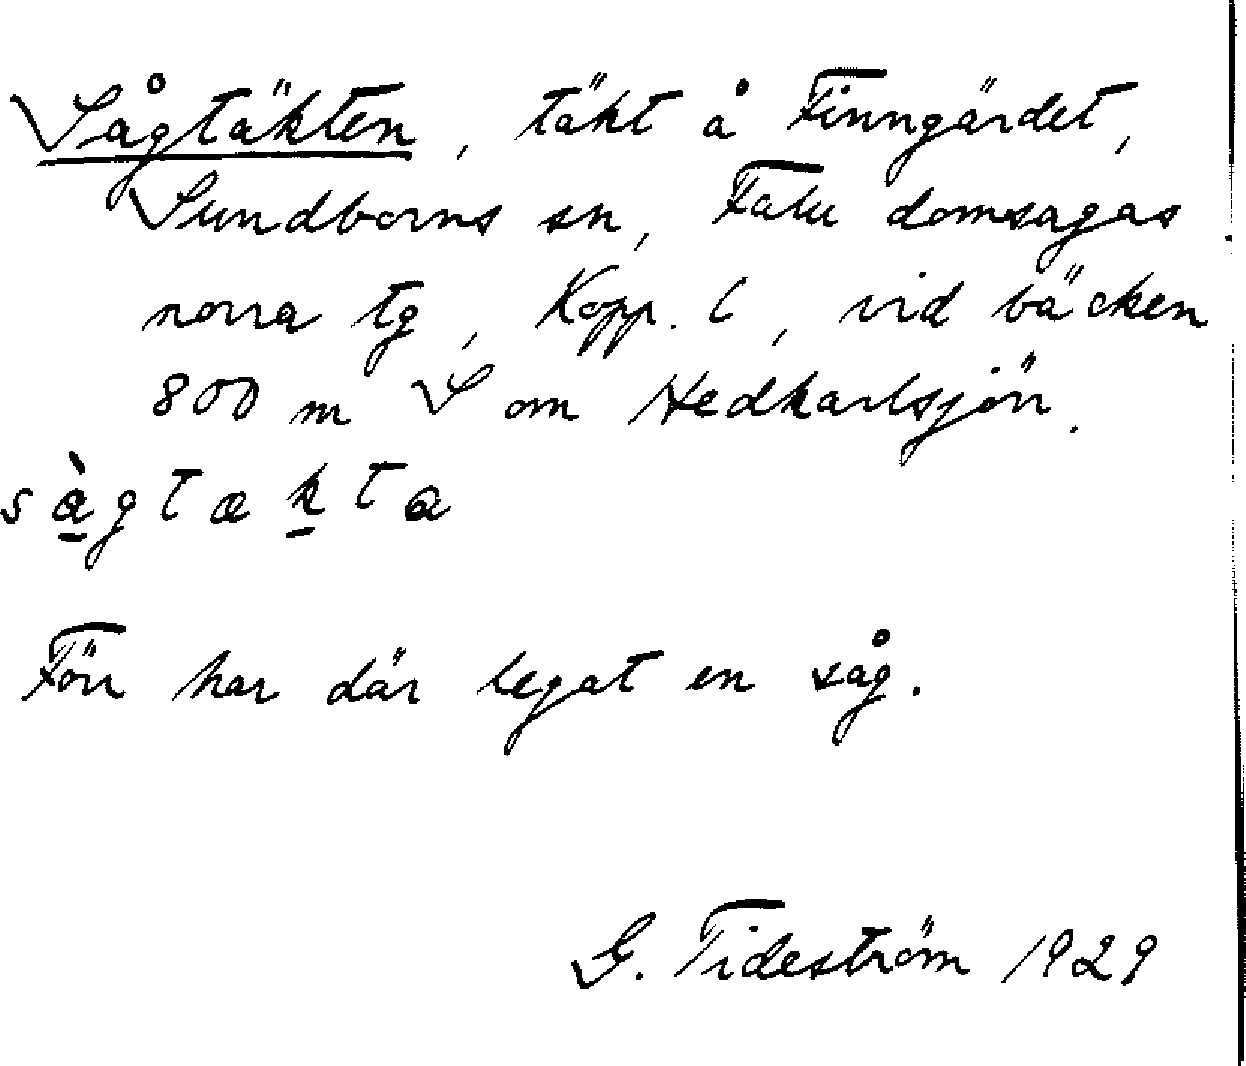 Sågtäkten, täkt å Finngärdet,
Sundborns sn, Falu domsagas
norra tg, Kopp. l, vid bäcken
800 m S om Hedkarlsjön.
sà̱gtæḵta
Förr har där legat en såg.
G. Tideström 1929